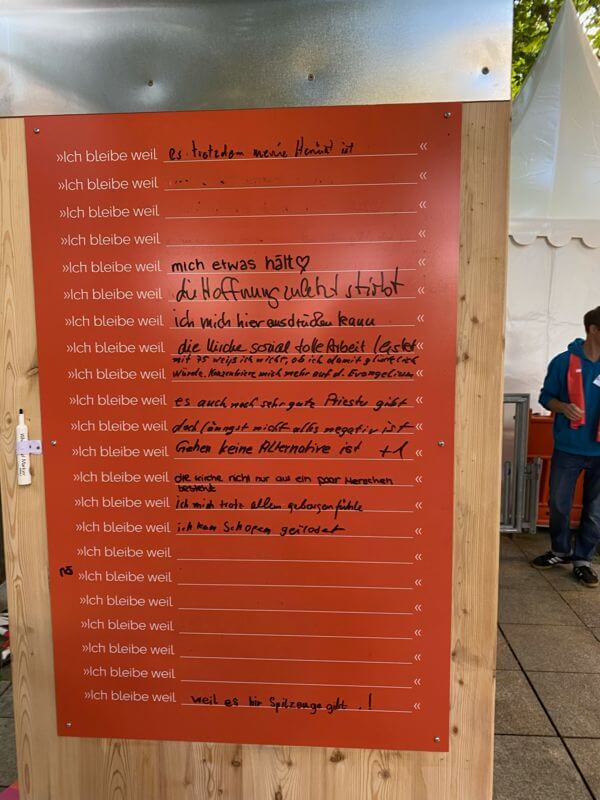 »Ich bleibe weil es trotzdem meine Heimat ist «
»Ich bleibe weil «
»Ich bleibe weil «
»Ich bleibe weil «
»Ich bleibe weil mich etwas hält♡ «
»Ich bleibe weil die Hoffnung zuletzt stirbt «
»Ich bleibe weil ich mich hier ausdrücken kann «
»Ich bleibe weil die Kirche sozial tolle Arbeit leistet «
mit 75 weiß ich nicht, ob ich damit glücklich
»Ich bleibe weil würde. Konzentriere mich mehr auf d. Evangelium «
»Ich bleibe weil es auch noch sehr gute Priester gibt «
»Ich bleibe weil doch längst nicht alles negativ ist «
»Ich bleibe weil Gehen keine Alternative ist +1 «
»Ich bleibe weil die Kirche nicht nur aus ein paar Menschen «
besteht
»Ich bleibe weil ich mich trotz allem geborgen fühle «
»Ich bleibe weil ich kan «
»Ich bleibe weil «
nö »Ich bleibe weil «
»Ich bleibe weil «
»Ich bleibe weil «
»Ich bleibe weil «
»Ich bleibe weil «
»Ich bleibe weil weil es hir Spilzeuge gibt .! «